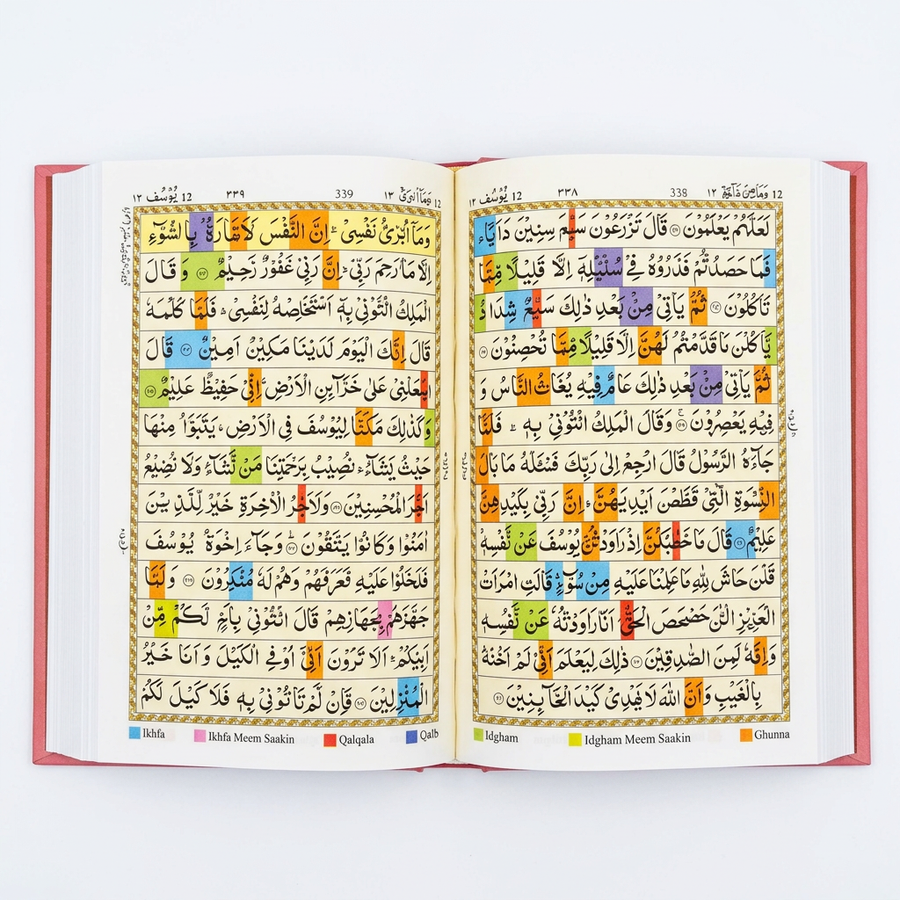 ١٢ يُوْسُف 12 ٣٣٨ 338 وَمَا مِنْ دَآبَّةٍ ١٢ 12
لَعَلَّهُمْ يَعْلَمُوْنَ ۝٤٦ قَالَ تَزْرَعُوْنَ سَبْعَ سِنِيْنَ دَاَبًا ۚ
فَمَا حَصَدْتُّمْ فَذَرُوْهُ فِيْ سُنْۢبُلِهٖۤ اِلَّا قَلِيْلًا مِّمَّا
تَاْكُلُوْنَ ۝٤٧ ثُمَّ يَاْتِيْ مِنْۢ بَعْدِ ذٰلِكَ سَبْعٌ شِدَادٌ
يَّاْكُلْنَ مَا قَدَّمْتُمْ لَهُنَّ اِلَّا قَلِيْلًا مِّمَّا تُحْصِنُوْنَ ۝٤٨
ثُمَّ يَاْتِيْ مِنْۢ بَعْدِ ذٰلِكَ عَامٌ فِيْهِ يُغَاثُ النَّاسُ وَ
فِيْهِ يَعْصِرُوْنَ ۝٤٩ وَقَالَ الْمَلِكُ ائْتُوْنِيْ بِهٖ ۚ فَلَمَّا
جَآءَهُ الرَّسُوْلُ قَالَ ارْجِعْ اِلٰى رَبِّكَ فَسْـَٔلْهُ مَا بَالُ
النِّسْوَةِ الّٰتِيْ قَطَّعْنَ اَيْدِيَهُنَّ ؕ اِنَّ رَبِّيْ بِكَيْدِهِنَّ
عَلِيْمٌ ۝٥٠ قَالَ مَا خَطْبُكُنَّ اِذْ رَاوَدْتُّنَّ يُوْسُفَ عَنْ نَّفْسِهٖ ؕ
قُلْنَ حَاشَ لِلّٰهِ مَا عَلِمْنَا عَلَيْهِ مِنْ سُوْٓءٍ ؕ قَالَتِ امْرَاَتُ
الْعَزِيْزِ الْـٰٔنَ حَصْحَصَ الْحَقُّ ۫ اَنَا رَاوَدْتُّهٗ عَنْ نَّفْسِهٖ
وَاِنَّهٗ لَمِنَ الصّٰدِقِيْنَ ۝٥١ ذٰلِكَ لِيَعْلَمَ اَنِّيْ لَمْ اَخُنْهُ
بِالْغَيْبِ وَاَنَّ اللّٰهَ لَا يَهْدِيْ كَيْدَ الْخَآئِنِيْنَ ۝٥٢
Idgham Idgham Meem Saakin Ghunna
١٢ يُوْسُف 12 ٣٣٩ 339 وَمَاۤ اُبَرِّئُ ١٣ 12
وَمَاۤ اُبَرِّئُ نَفْسِيْ ۚ اِنَّ النَّفْسَ لَاَمَّارَةٌۢ بِالسُّوْٓءِ
اِلَّا مَا رَحِمَ رَبِّيْ ؕ اِنَّ رَبِّيْ غَفُوْرٌ رَّحِيْمٌ ۝٥٣ وَقَالَ
الْمَلِكُ ائْتُوْنِيْ بِهٖۤ اَسْتَخْلِصْهُ لِنَفْسِيْ ۚ فَلَمَّا كَلَّمَهٗ
قَالَ اِنَّكَ الْيَوْمَ لَدَيْنَا مَكِيْنٌ اَمِيْنٌ ۝٥٤ قَالَ
اجْعَلْنِيْ عَلٰى خَزَآئِنِ الْاَرْضِ ۚ اِنِّيْ حَفِيْظٌ عَلِيْمٌ ۝٥٥
وَكَذٰلِكَ مَكَّنَّا لِيُوْسُفَ فِي الْاَرْضِ ۚ يَتَبَوَّاُ مِنْهَا
حَيْثُ يَشَآءُ ؕ نُصِيْبُ بِرَحْمَتِنَا مَنْ نَّشَآءُ وَلَا نُضِيْعُ
اَجْرَ الْمُحْسِنِيْنَ ۝٥٦ وَلَاَجْرُ الْاٰخِرَةِ خَيْرٌ لِّلَّذِيْنَ
اٰمَنُوْا وَكَانُوْا يَتَّقُوْنَ ۝٥٧ وَجَآءَ اِخْوَةُ يُوْسُفَ
فَدَخَلُوْا عَلَيْهِ فَعَرَفَهُمْ وَهُمْ لَهٗ مُنْكِرُوْنَ ۝٥٨ وَلَمَّا
جَهَّزَهُمْ بِجَهَازِهِمْ قَالَ ائْتُوْنِيْ بِاَخٍ لَّكُمْ مِّنْ
اَبِيْكُمْ ۚ اَلَا تَرَوْنَ اَنِّيْۤ اُوْفِي الْكَيْلَ وَاَنَا خَيْرُ
الْمُنْزِلِيْنَ ۝٥٩ فَاِنْ لَّمْ تَاْتُوْنِيْ بِهٖ فَلَا كَيْلَ لَكُمْ
Ikhfa Ikhfa Meem Saakin Qalqala Qalb